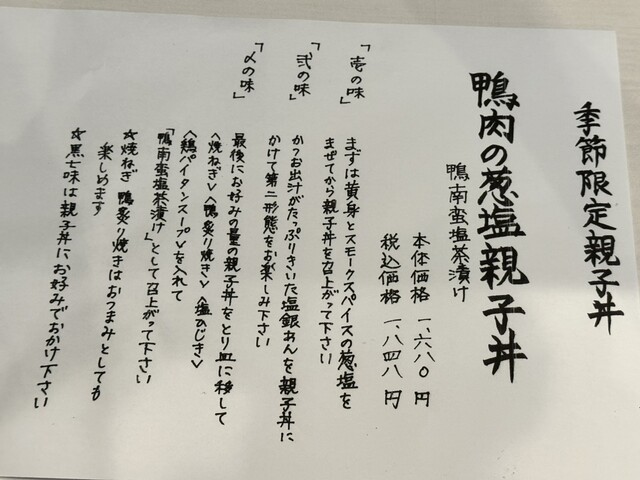 季節限定親子丼
鴨肉の葱塩親子丼
鴨南蛮塩茶漬け
本体価格 一、六八〇円
税込価格 一、八四八円
「壱の味」
まずは黄身とスモークスパイスの葱塩を
まぜてから親子丼を召上がって下さい
「弐の味」
かつお出汁がたっぷりきいた塩銀あんを親子丼に
かけて第二形態をお楽しみ下さい
「〆の味」
最後にお好みの量の親子丼をとり皿に移して
<焼ねぎ> <鴨炙り焼き> <塩ひじき>
<鶏パイタンスープ>を入れて
「鴨南蛮塩茶漬け」として召上がって下さい
☆焼ねぎ 鴨炙り焼きはおつまみとしても
楽しめます
☆黒七味は親子丼にお好みでおかけ下さい